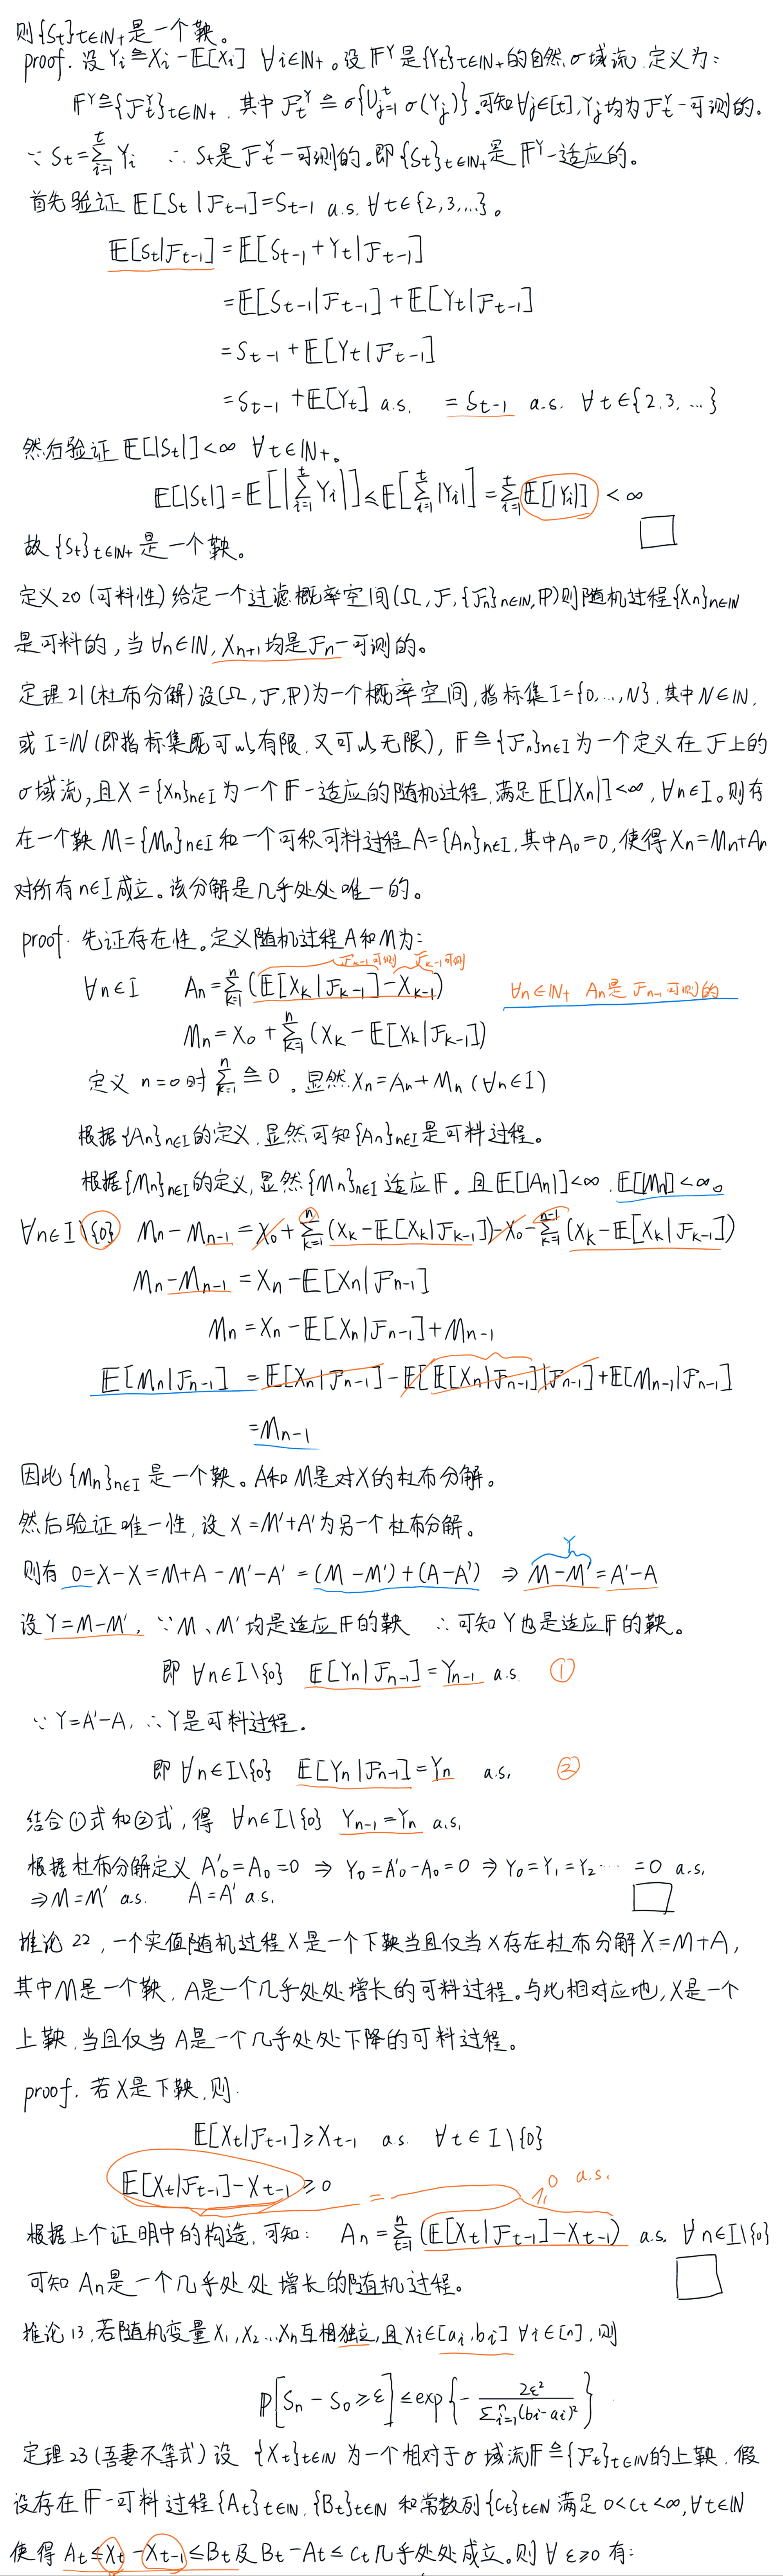 则{St}t∈ℕ+是一个鞅。
proof. 设 Yi ≙ Xi - 𝔼[Xi] ∀i∈ℕ+。设 𝔽^Y 是{Yt}t∈ℕ+的自然σ域流,定义为:
𝔽^Y ≙ {ℱt^Y}t∈ℕ+, 其中 ℱt^Y ≙ σ{∪_{j=1}^t σ(Yj)}. 可知∀j∈[t], Yj均为ℱt^Y-可测的.
∵ St = ∑_{i=1}^t Yi ∴ St是ℱt^Y-可测的。即{St}t∈ℕ+是 𝔽^Y-适应的。
首先验证 𝔼[St|ℱt-1]=St-1 a.s. ∀t∈{2,3,...}。
𝔼[St|ℱt-1] = 𝔼[St-1+Yt|ℱt-1]
=𝔼[St-1|ℱt-1] + 𝔼[Yt|ℱt-1]
=St-1 + 𝔼[Yt|ℱt-1]
=St-1 + 𝔼[Yt] a.s. = St-1 a.s. ∀t∈{2,3,...}
然后验证 𝔼[|St|]<∞ ∀t∈ℕ+。
𝔼[|St|] = 𝔼[|∑_{i=1}^t Yi|] ≤ 𝔼[∑_{i=1}^t |Yi|] = ∑_{i=1}^t 𝔼[|Yi|] < ∞
故{St}t∈ℕ+是一个鞅。 □
定义20 (可料性) 给定一个过滤概率空间(Ω, ℱ, {ℱn}n∈ℕ, ℙ)则随机过程{Xn}n∈ℕ
是可料的, 当∀n∈ℕ, Xn+1均是ℱn-可测的。
定理21(杜布分解)设(Ω, ℱ, ℙ)为一个概率空间, 指标集I={0,...,N}, 其中N∈ℕ,
或I=ℕ(即指标集既可以有限,又可以无限), 𝔽≙{ℱn}n∈I为一个定义在ℱ上的
σ域流,且X={Xn}n∈I为一个𝔽-适应的随机过程,满足𝔼[|Xn|]<∞, ∀n∈I。则存
在一个鞅M={Mn}n∈I和一个可积可料过程A={An}n∈I,其中A0=0,使得Xn=Mn+An
对所有n∈I成立。该分解是几乎处处唯一的。
proof. 先证存在性。定义随机过程A和M为:
ℱn-1可测 ℱk-1可测
∀n∈I An=∑_{k=1}^n (𝔼[Xk|ℱk-1]-Xk-1) ∀n∈ℕ+ An是ℱn-1可测的
Mn=X0+∑_{k=1}^n (Xk-𝔼[Xk|ℱk-1])
定义 n=0时 ∑_{k=1}^n ≙ 0。显然Xn=An+Mn (∀n∈I)
根据{An}n∈I的定义,显然可知{An}n∈I是可料过程。
根据{Mn}n∈I的定义,显然{Mn}n∈I适应𝔽。且𝔼[|An|]<∞, 𝔼[|Mn|]<∞。
∀n∈I\{0} Mn-Mn-1 = X0+∑_{k=1}^n (Xk-𝔼[Xk|ℱk-1])-X0-∑_{k=1}^{n-1} (Xk-𝔼[Xk|ℱk-1])
Mn-Mn-1 = Xn-𝔼[Xn|ℱn-1]
Mn = Xn-𝔼[Xn|ℱn-1]+Mn-1
𝔼[Mn|ℱn-1] = 𝔼[Xn|ℱn-1]-𝔼[𝔼[Xn|ℱn-1]|ℱn-1]+𝔼[Mn-1|ℱn-1]
=Mn-1
因此{Mn}n∈I是一个鞅。A和M是对X的杜布分解。
然后验证唯一性,设X=M'+A'为另一个杜布分解。
Y
则有 0=X-X=M+A-M'-A'=(M-M')+(A-A') ⇒ M-M'=A'-A
设Y=M-M', ∵M、M'均是适应𝔽的鞅 ∴可知Y也是适应𝔽的鞅。
即 ∀n∈I\{0} 𝔼[Yn|ℱn-1]=Yn-1 a.s. ①
∵Y=A'-A, ∴Y是可料过程.
即 ∀n∈I\{0} 𝔼[Yn|ℱn-1]=Yn a.s. ②
结合①式和②式, 得 ∀n∈I\{0} Yn-1=Yn a.s.
根据杜布分解定义 A'0=A0=0 ⇒ Y0=A'0-A0=0 ⇒ Y0=Y1=Y2...... =0 a.s.
⇒M=M' a.s. A=A' a.s. □
推论22, 一个实值随机过程X是一个下鞅当且仅当X存在杜布分解X=M+A,
其中M是一个鞅, A是一个几乎处处增长的可料过程。与此相对应地,X是一个
上鞅,当且仅当A是一个几乎处处下降的可料过程。
proof. 若X是下鞅,则.
𝔼[Xt|ℱt-1]≥Xt-1 a.s. ∀t∈I\{0}
𝔼[Xt|ℱt-1]-Xt-1≥0 = ≥0 a.s.
根据上个证明中的构造,可知: An=∑_{t=1}^n (𝔼[Xt|ℱt-1]-Xt-1) a.s. ∀n∈I\{0}
可知An是一个几乎处处增长的随机过程。 □
推论13,若随机变量X1,X2...Xn互相独立,且Xi∈[ai,bi] ∀i∈[n],则
ℙ[Sn-S0≥ε]≤exp{-2ε²/∑_{i=1}^n(bi-ai)²}
定理23(吾妻不等式)设 {Xt}t∈ℕ为一个相对于σ域流𝔽≙{ℱt}t∈ℕ的上鞅,假
设存在𝔽-可料过程{At}t∈ℕ,{Bt}t∈ℕ和常数列{Ct}t∈ℕ满足0<Ct<∞,∀t∈ℕ
使得 At≤Xt-Xt-1≤Bt及Bt-At≤Ct几乎处处成立。则∀ε≥0有: